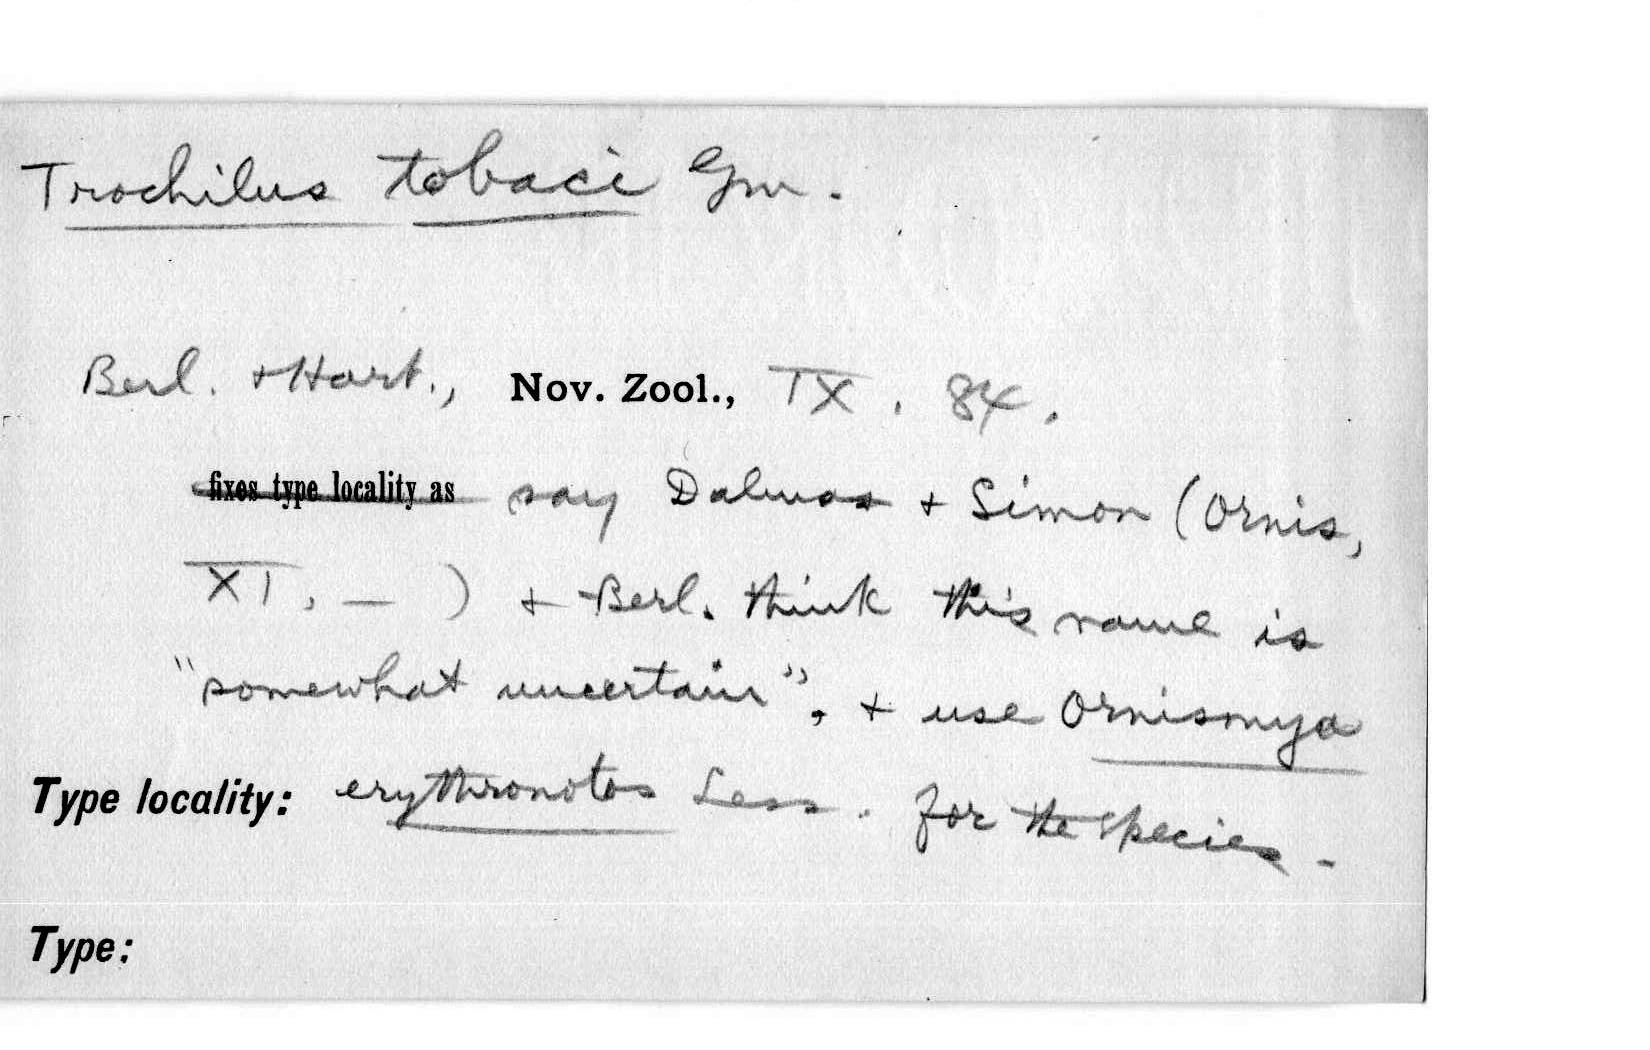 Trochilus tobaci Gm.
Berl. + Hart., Nov. Zool., IX. 84.
fixes type locality as say Dalmas + Simon (Ornis,
XI, — ) + Berl. think this name is
"somewhat uncertain", + use Ornismya
Type locality: erythronotos Less. for the species.
Type: